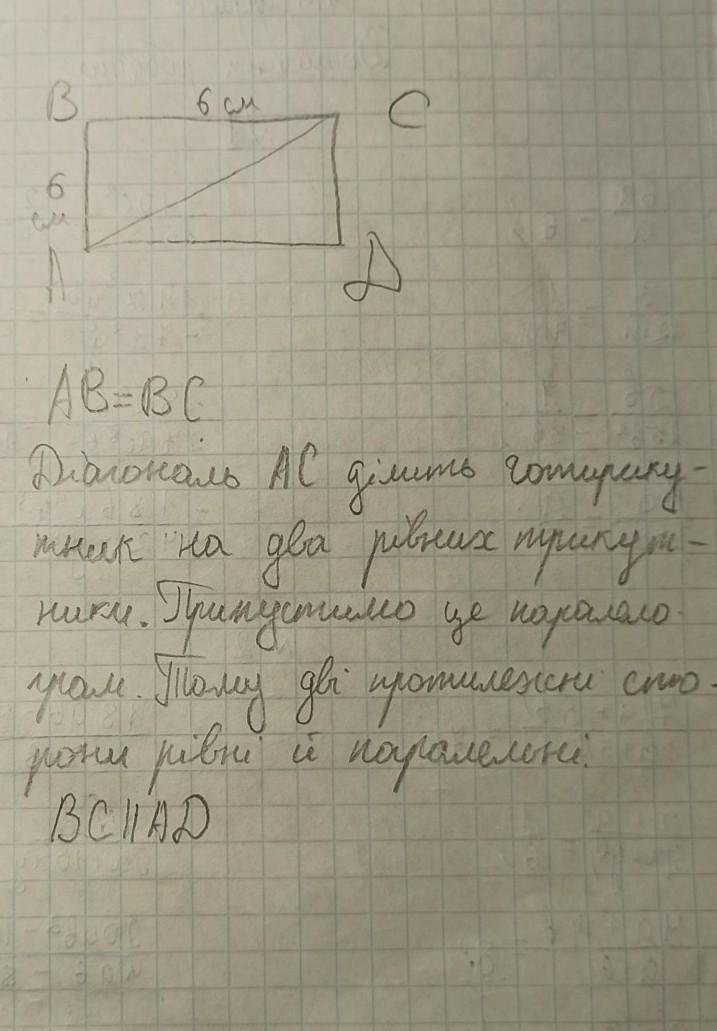 B 6 см C
6
см
A D
AB=BC
Діагональ AC ділить чотирику-
тник на два рівних трикут-
ники. Припустимо це парало-
грам. Тому дві протилежні сто-
рони рівні й паралельні.
BC||AD